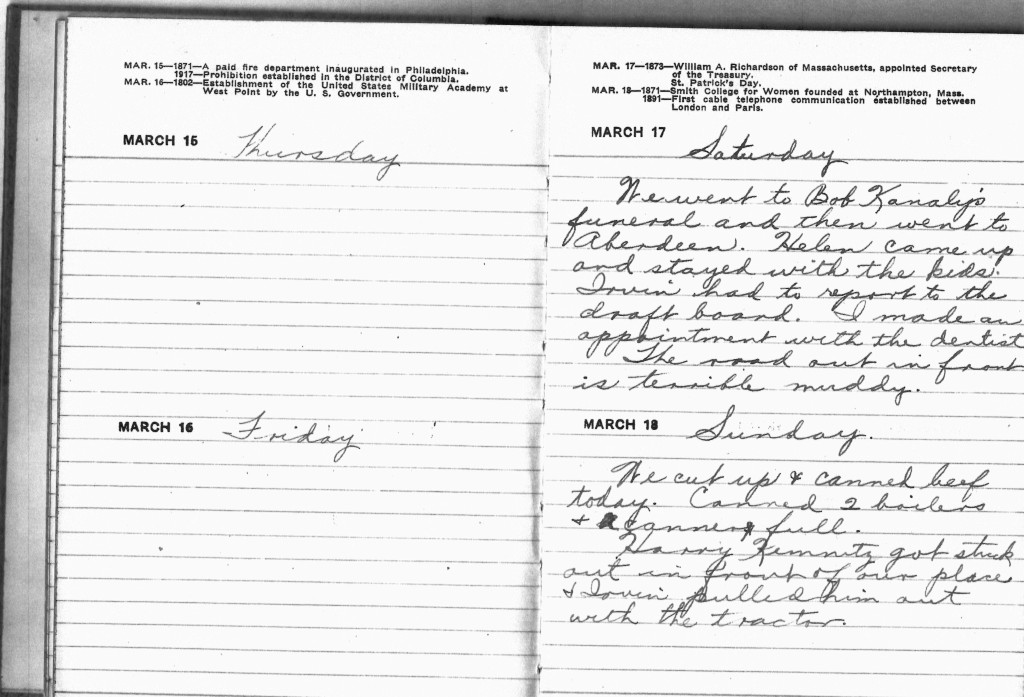 MAR. 15—1871—A paid fire department inaugurated in Philadelphia.
1917—Prohibition established in the District of Columbia.
MAR. 16—1802—Establishment of the United States Military Academy at
West Point by the U. S. Government.
MARCH 15 Thursday
MARCH 16 Friday
MAR. 17—1873—William A. Richardson of Massachusetts, appointed Secretary
of the Treasury.
St. Patrick's Day.
MAR. 18—1871—Smith College for Women founded at Northampton, Mass.
1891—First cable telephone communication established between
London and Paris.
MARCH 17 Saturday
We went to Bob Kanaly's
funeral and then went to
Aberdeen. Helen came up
and stayed with the kids.
Irvin had to report to the
draft board. I made an
appointment with the dentist
The road out in front
is terrible muddy.
MARCH 18 Sunday.
We cut up & canned beef
today. Canned 2 boilers
& canner full.
Harry Kemnitz got stuck
out in front of our place
& Irvin pulled him out
with the tractor.